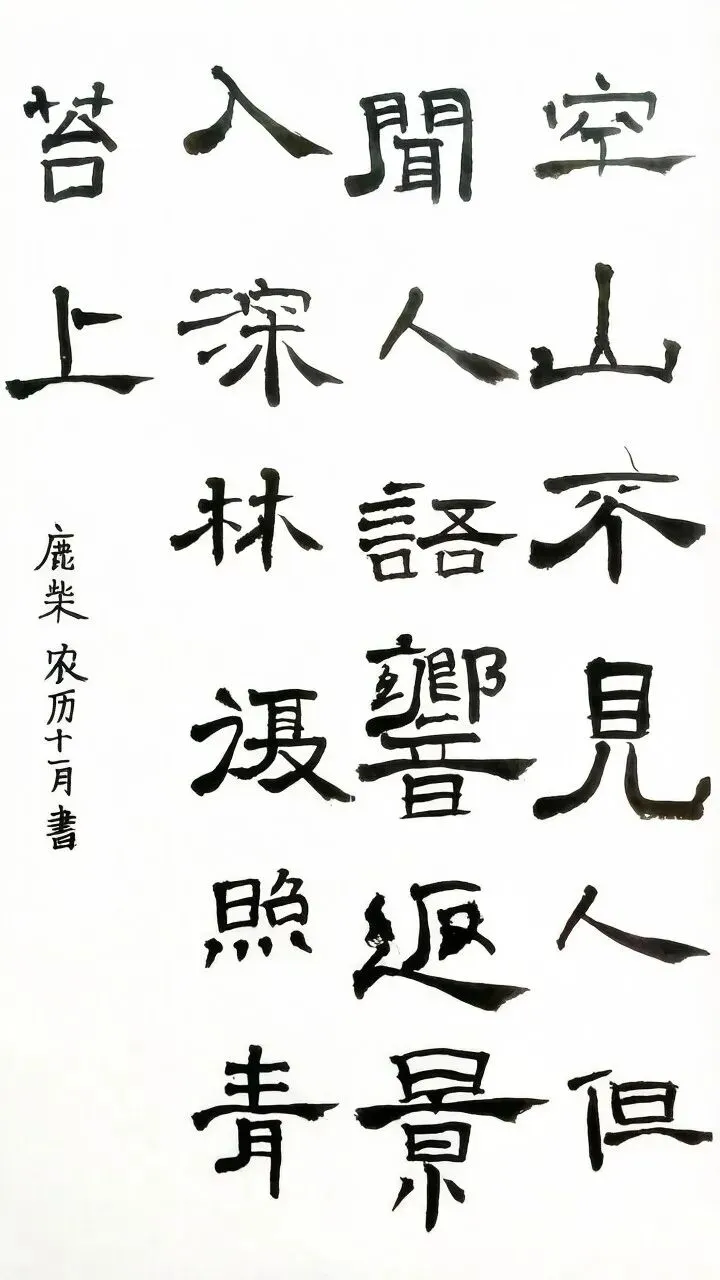 空山不見人但
聞人語響返景
入深林復照青
苔上
鹿柴 农历十一月書